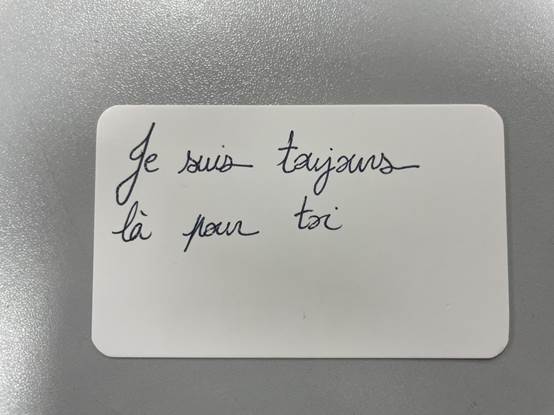 Je suis toujours
là pour toi